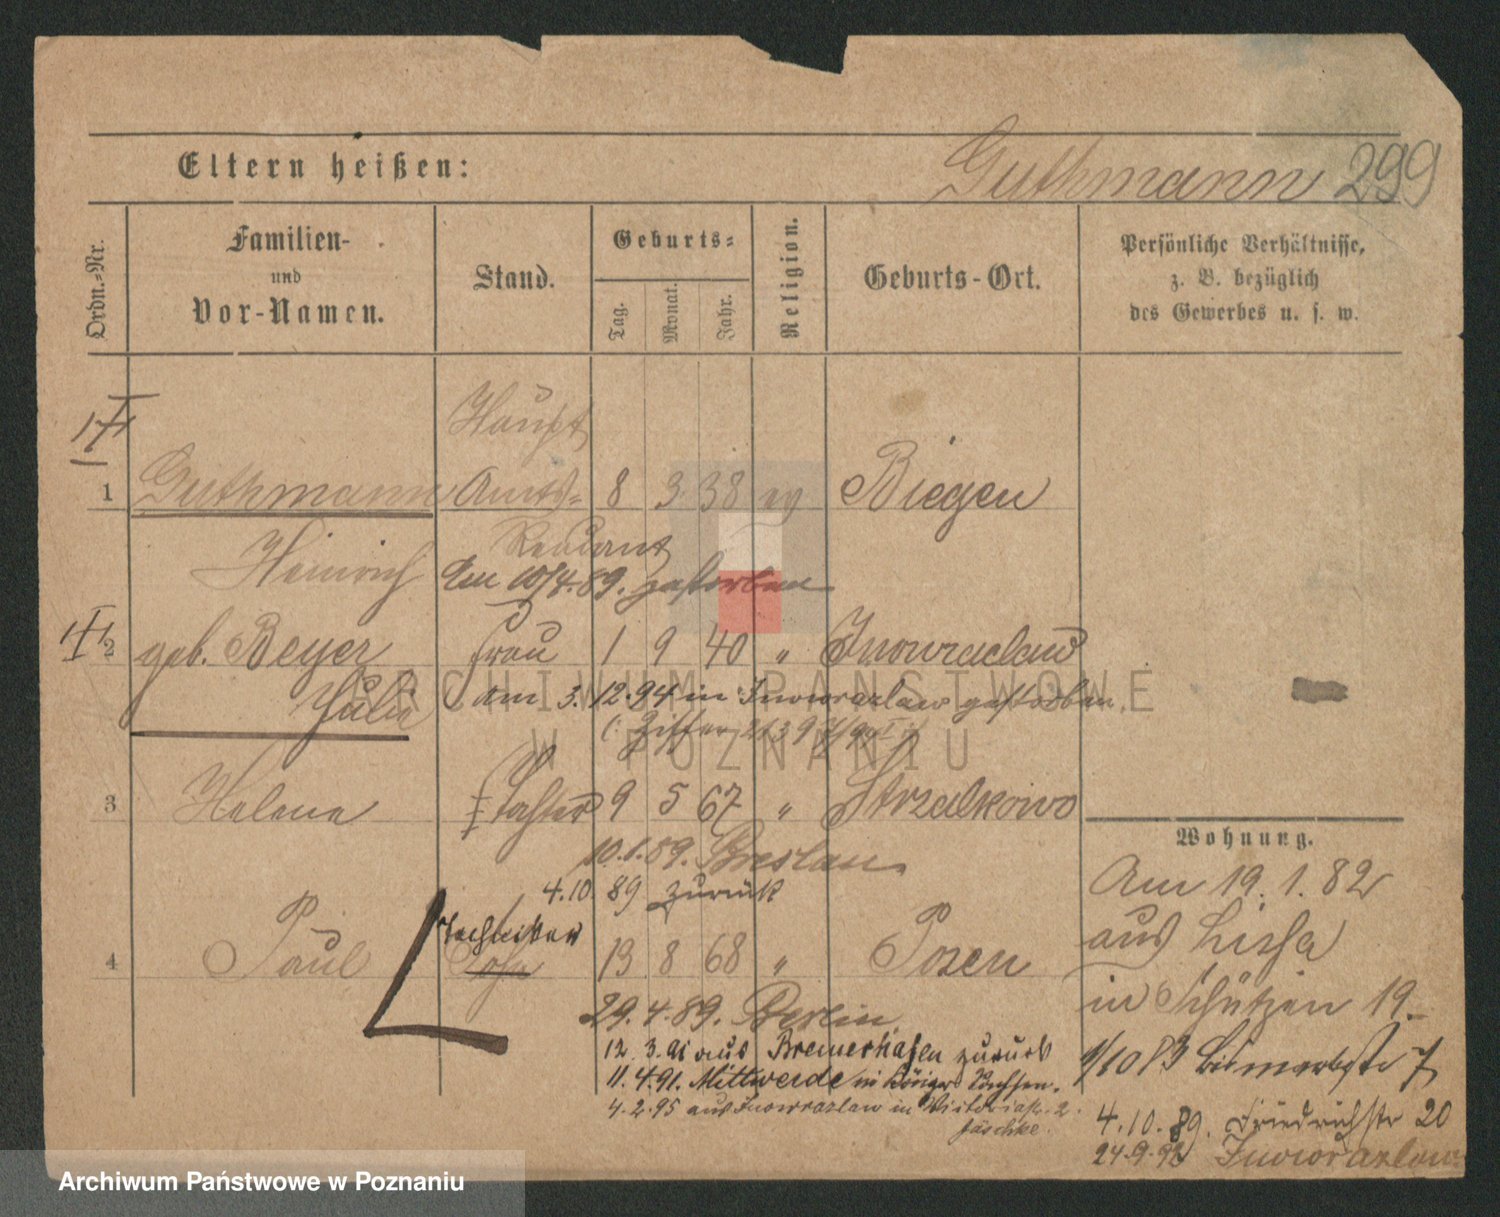 Eltern heißen:
Guthmann 299
Ordn.-Nr.
Familien-
und
Vor-Namen.
Stand.
Geburts-
Tag.
Monat.
Jahr.
Religion.
Geburts-Ort.
Persönliche Verhältnisse,
z. B. bezüglich
des Gewerbes u. s. w.
Haupt
1 Guthmann Amts- 8 3 38 ev Biegen
Heinrich Rendant
Am 10/4.89. gestorben
2 geb. Beyer Frau 1 9 40 " Inowraclaw
Julie am 3.12.94 in Inowrazlaw gestorben.
3 Helene Tochter 9 5 67 " Strzalkowo
10.1.89. Breslau.
4.10.89 zurück
Techniker
4 Paul Sohn 13 8 68 " Posen
29.4.89. Berlin
12.3.91 aus Bremerhafen zurück
11.4.91. Mittweide in Königr. Sachsen.
4.2.95 aus Inowrazlaw in Viktoriastr. 2.
Jäschke.
Wohnung.
Am 19.1.82
aus Lissa
in Schützen 19.
1/10 83 Bismarkstr 7
4.10.89. Friedrichstr 20
24.9.92 Inowrazlaw
ARCHIWUM PAŃSTWOWE
W POZNANIU
Archiwum Państwowe w Poznaniu